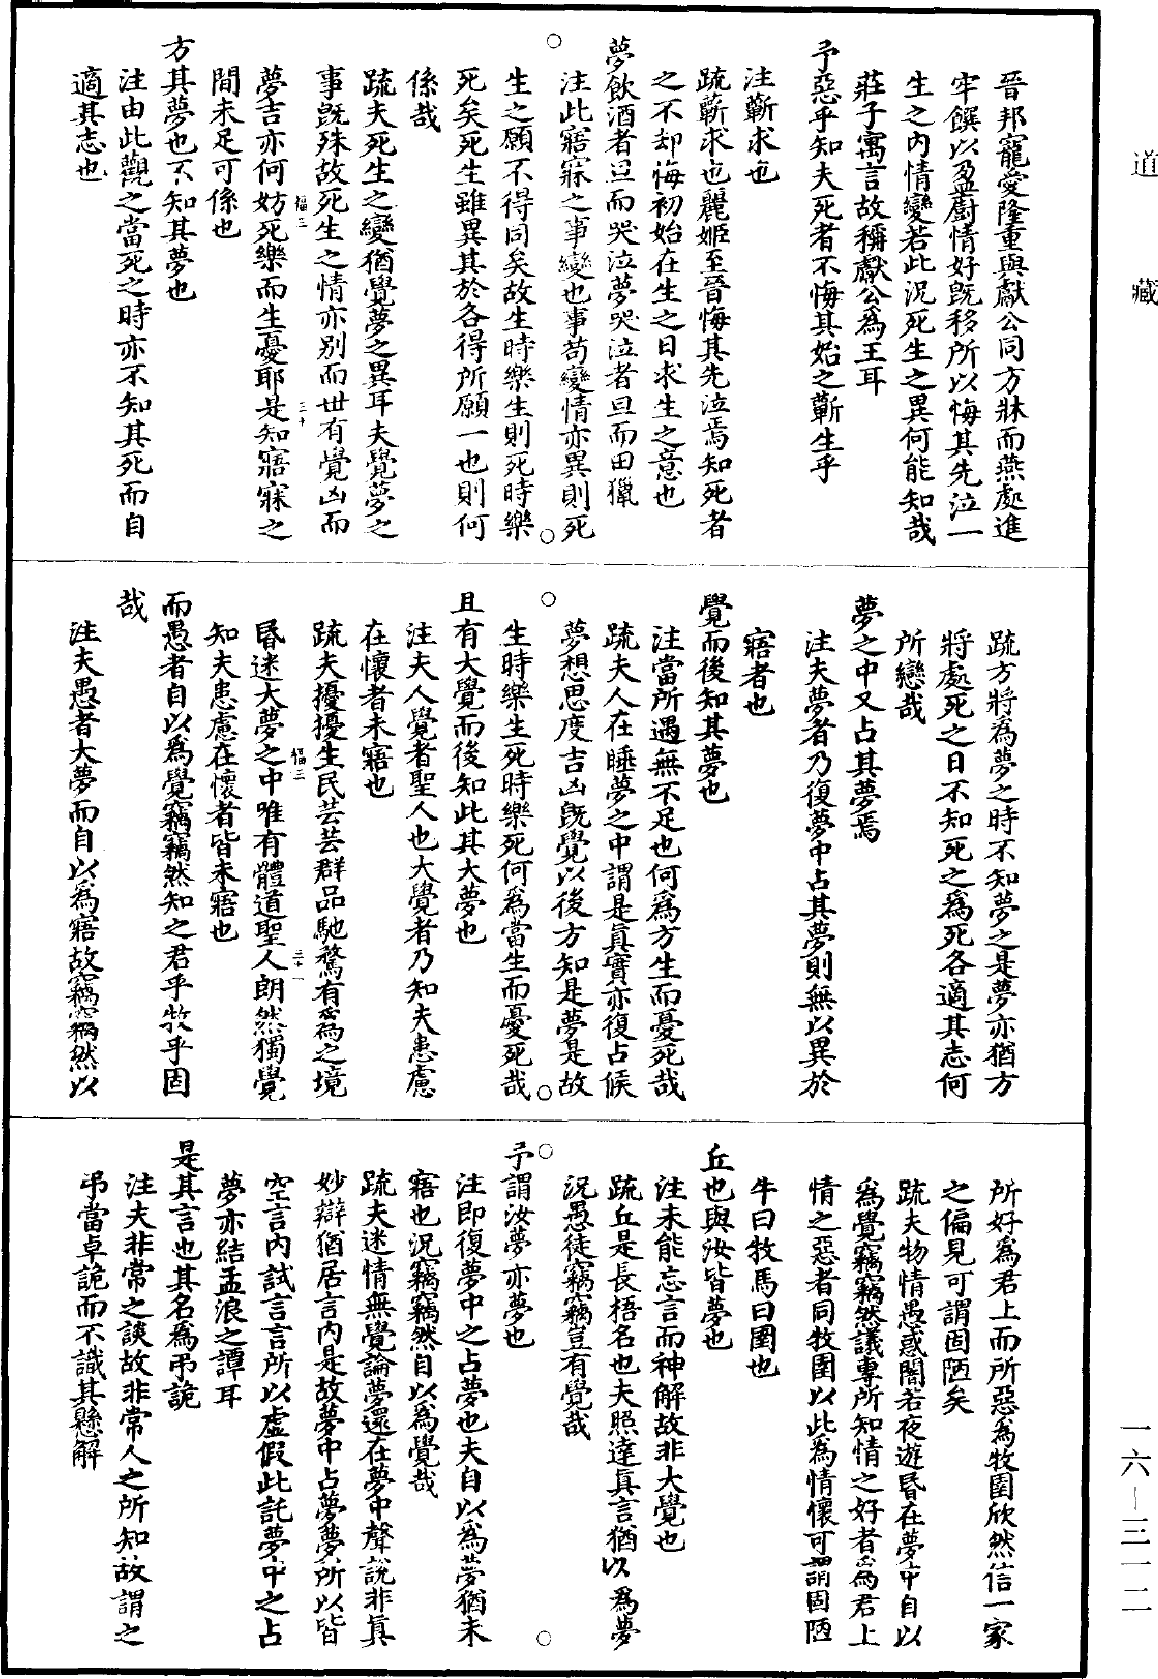 道藏
晉邦寵愛隆重與獻公同方牀而燕處進
牢饌以盈廚情好既移所以悔其先泣一
生之內情變若此況死生之異何能知哉
莊子寓言故稱獻公為王耳
予惡乎知夫死者不悔其始之蘄生乎
注蘄求也
疏蘄求也麗姬至晉悔其先泣焉知死者
之不却悔初始在生之日求生之意也
夢飲酒者旦而哭泣夢哭泣者旦而田獵
注此寤寐之事變也事苟變情亦異則死
生之願不得同矣故生時樂生則死時樂
死矣死生雖異其於各得所願一也則何
係哉
疏夫死生之變猶覺夢之異耳夫覺夢之
事既殊故死生之情亦別而世有覺凶而
福三 三十
夢吉亦何妨死樂而生憂耶是知寤寐之
間未足可係也
方其夢也不知其夢也
注由此觀之當死之時亦不知其死而自
適其志也
疏方將為夢之時不知夢之是夢亦猶方
將處死之日不知死之為死各適其志何
所戀哉
夢之中又占其夢焉
注夫夢者乃復夢中占其夢則無以異於
寤者也
覺而後知其夢也
注當所遇無不足也何為方生而憂死哉
疏夫人在睡夢之中謂是真實亦復占候
夢想思度吉凶既覺以後方知是夢是故
生時樂生死時樂死何為當生而憂死哉
且有大覺而後知此其大夢也
注夫人覺者聖人也大覺者乃知夫患慮
在懷者未寤也
疏夫擾擾生民芸芸群品馳騖有為之境
福三 三十一
昏迷大夢之中唯有體道聖人朗然獨覺
知夫患慮在懷者皆未寤也
而愚者自以為覺竊竊然知之君乎牧乎固
哉
注夫愚者大夢而自以為寤故竊竊然以
所好為君上而所惡為牧圉欣然信一家
之偏見可謂固陋矣
疏夫物情愚惑闇若夜遊昏在夢中自以
為覺竊竊然議專所知情之好者為君上
情之惡者同牧圉以此為情懷可謂固陋
牛曰牧馬曰圉也
丘也與汝皆夢也
注未能忘言而神解故非大覺也
疏丘是長梧名也夫照達真言猶以為夢
況愚徒竊竊豈有覺哉
予謂汝夢亦夢也
注即復夢中之占夢也夫自以為夢猶未
寤也況竊竊然自以為覺哉
疏夫迷情無覺論夢還在夢中聲說非真
妙辯猶居言內是故夢中占夢夢所以皆
空言內試言言所以虛假此託夢中之占
夢亦結孟浪之譚耳
是其言也其名為弔詭
注夫非常之談故非常人之所知故謂之
弔當卓詭而不識其懸解
一六-三一二